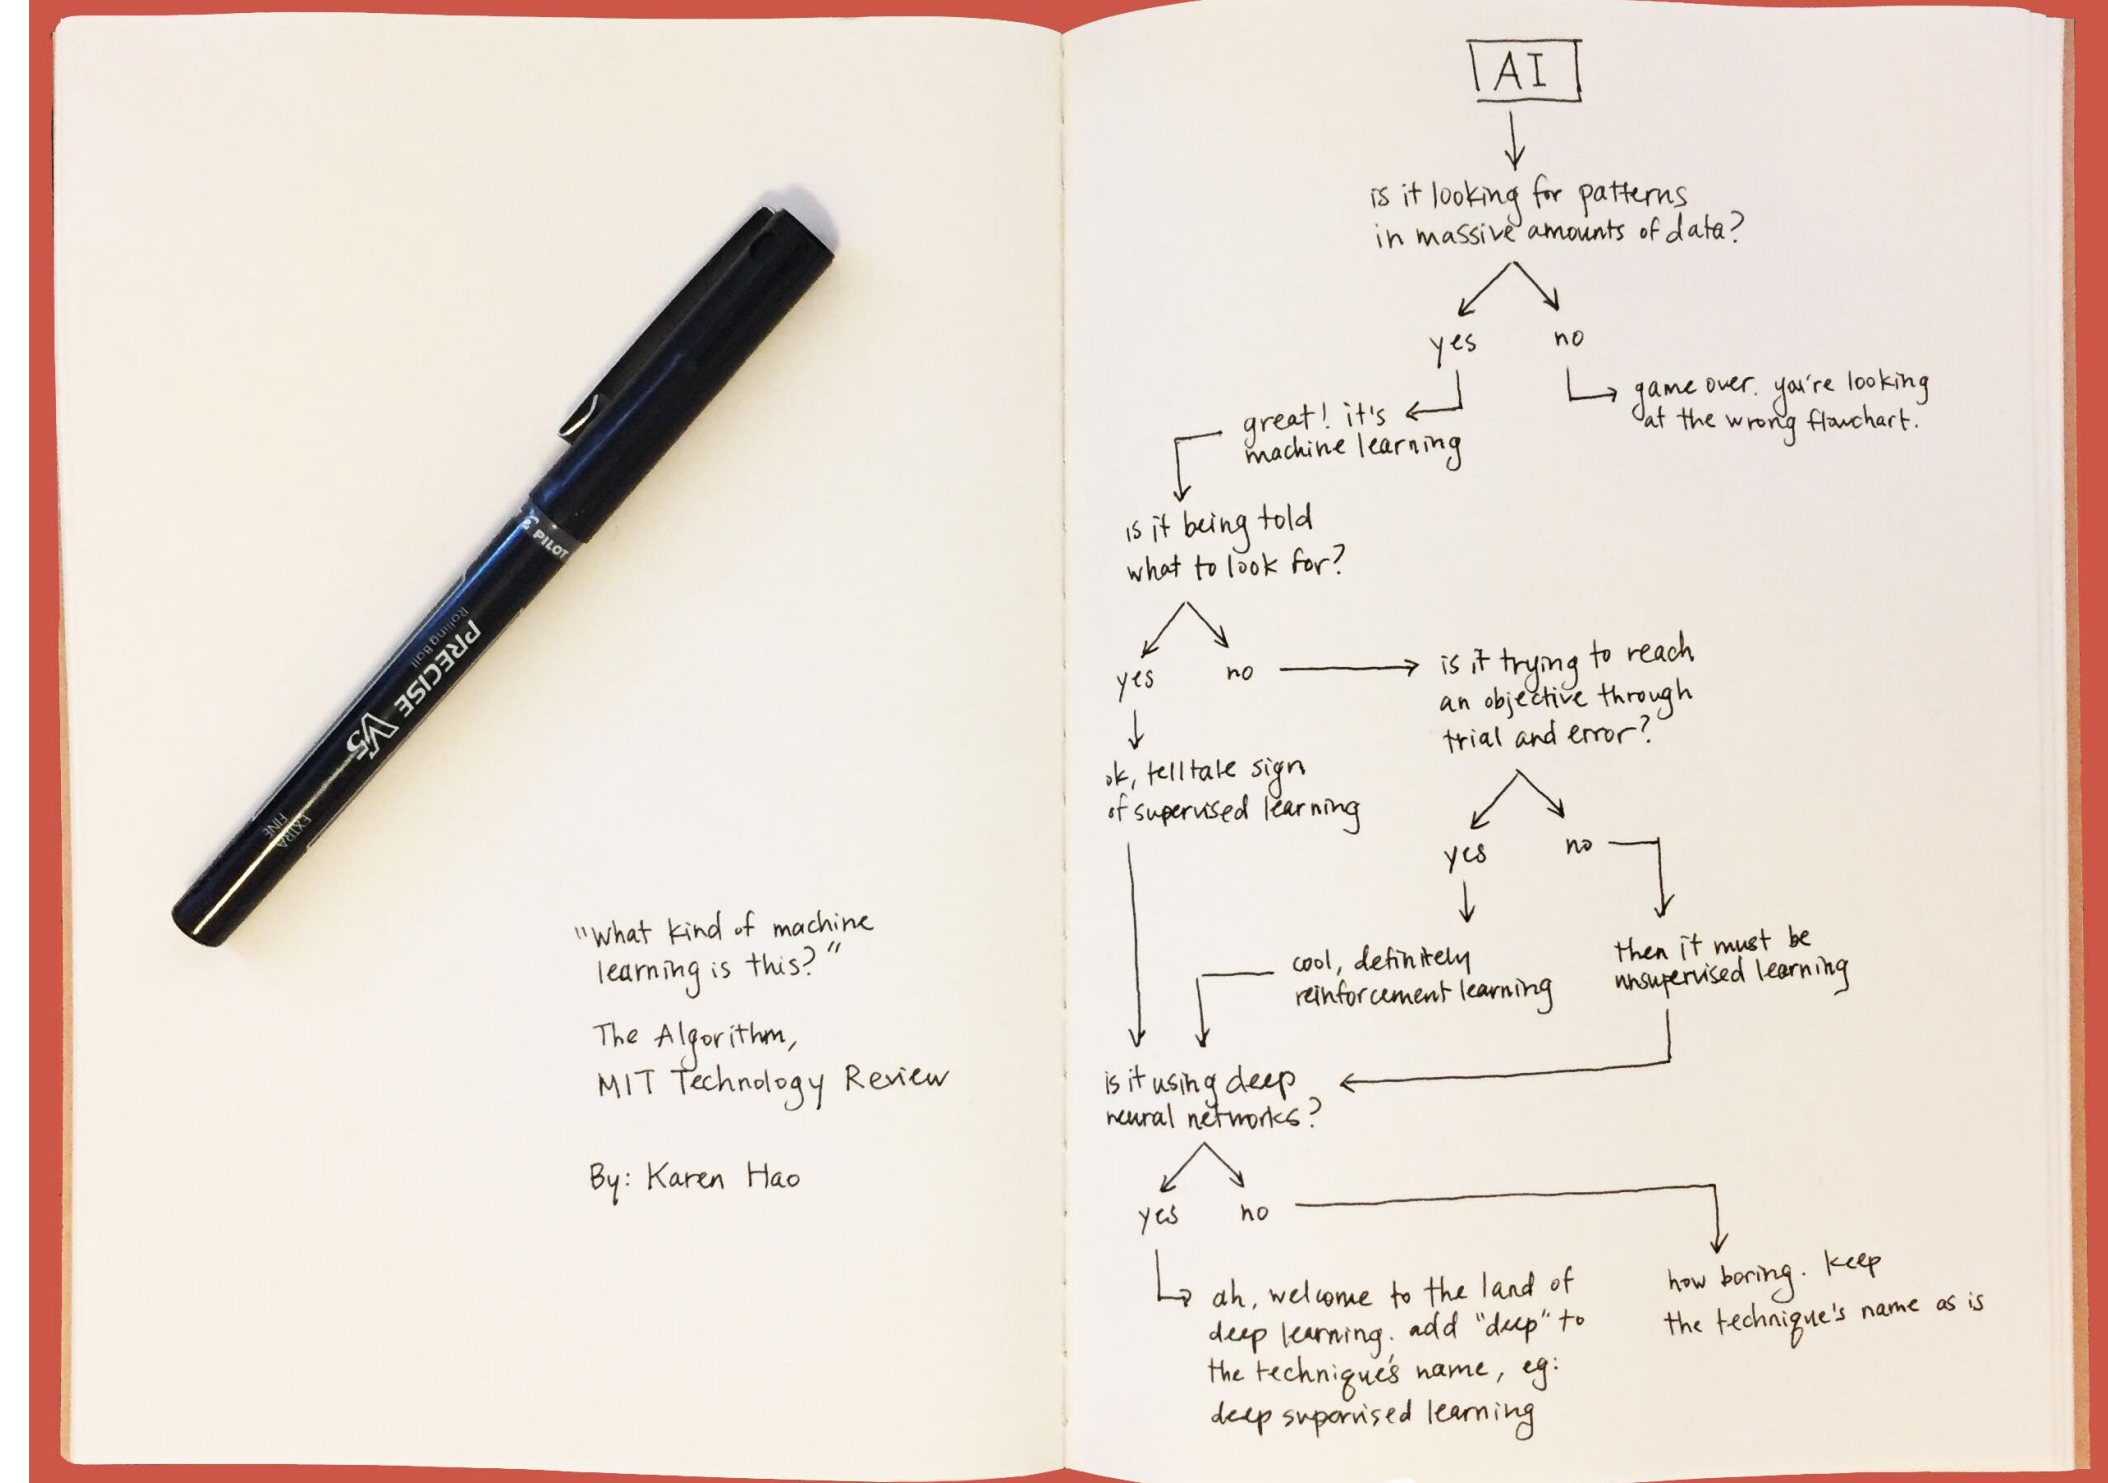 PILOT
PRECISE V5
Rolling Ball
EXTRA
FINE
"What kind of machine
learning is this?"
The Algorithm,
MIT Technology Review
By: Karen Hao
AI
is it looking for patterns
in massive amounts of data?
yes
no
great! it's
machine learning
game over. you're looking
at the wrong flowchart.
is it being told
what to look for?
yes
no
is it trying to reach
an objective through
trial and error?
ok, telltale sign
of supervised learning
yes
no
cool, definitely
reinforcement learning
then it must be
unsupervised learning
is it using deep
neural networks?
yes
no
ah, welcome to the land of
deep learning. add "deep" to
the technique's name, eg:
deep supervised learning
how boring. keep
the technique's name as is